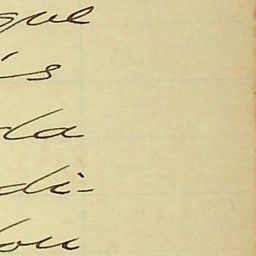 que
is
da
di-
ou